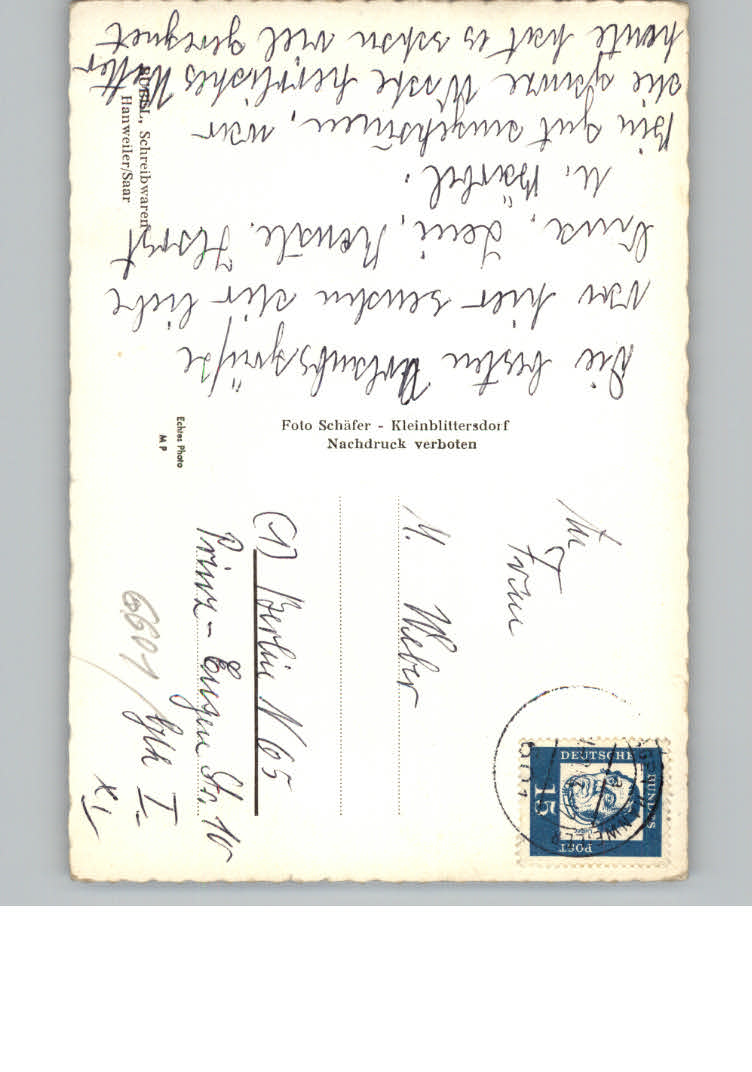 Die besten Urlaubsgrüße
von hier senden Dir liebe
Horst
u. Bärbel.
Bin gut angekommen, war
die ganze Woche herrliches Wetter
heute hat es schon viel geregnet
Schreibwaren
Hanweiler/Saar
Foto Schäfer - Kleinblittersdorf
Nachdruck verboten
Echtes Photo
M P
An
Frau
M. Weber
(1) Berlin N 65
Prinz-Eugen Str. 10
6601
DEUTSCHE
BUNDES
POST
15